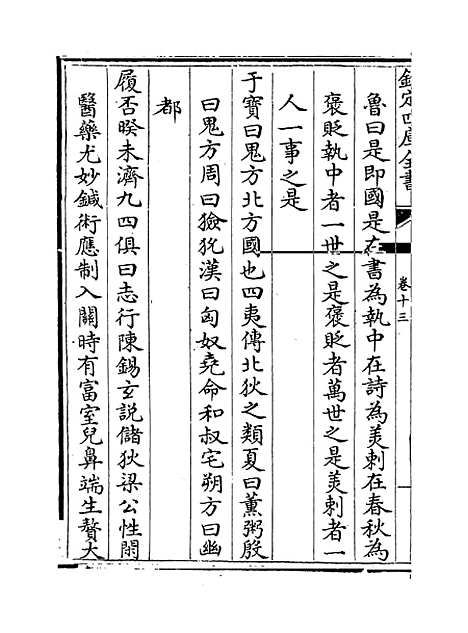 欽定四庫全書
卷十三
魯曰是即國是在書為執中在詩為美刺在春秋為
褒貶執中者一世之是褒貶者萬世之是美刺者一
人一事之是
于寶曰鬼方北方國也四夷傳北狄之類夏曰薰粥殷
曰鬼方周曰獫狁漢曰匈奴堯命和叔宅朔方曰幽
都
履否睽未濟九四俱曰志行陳錫玄説儲狄梁公性閑
醫藥尤妙鍼術應制入關時有富室兒鼻端生贅大